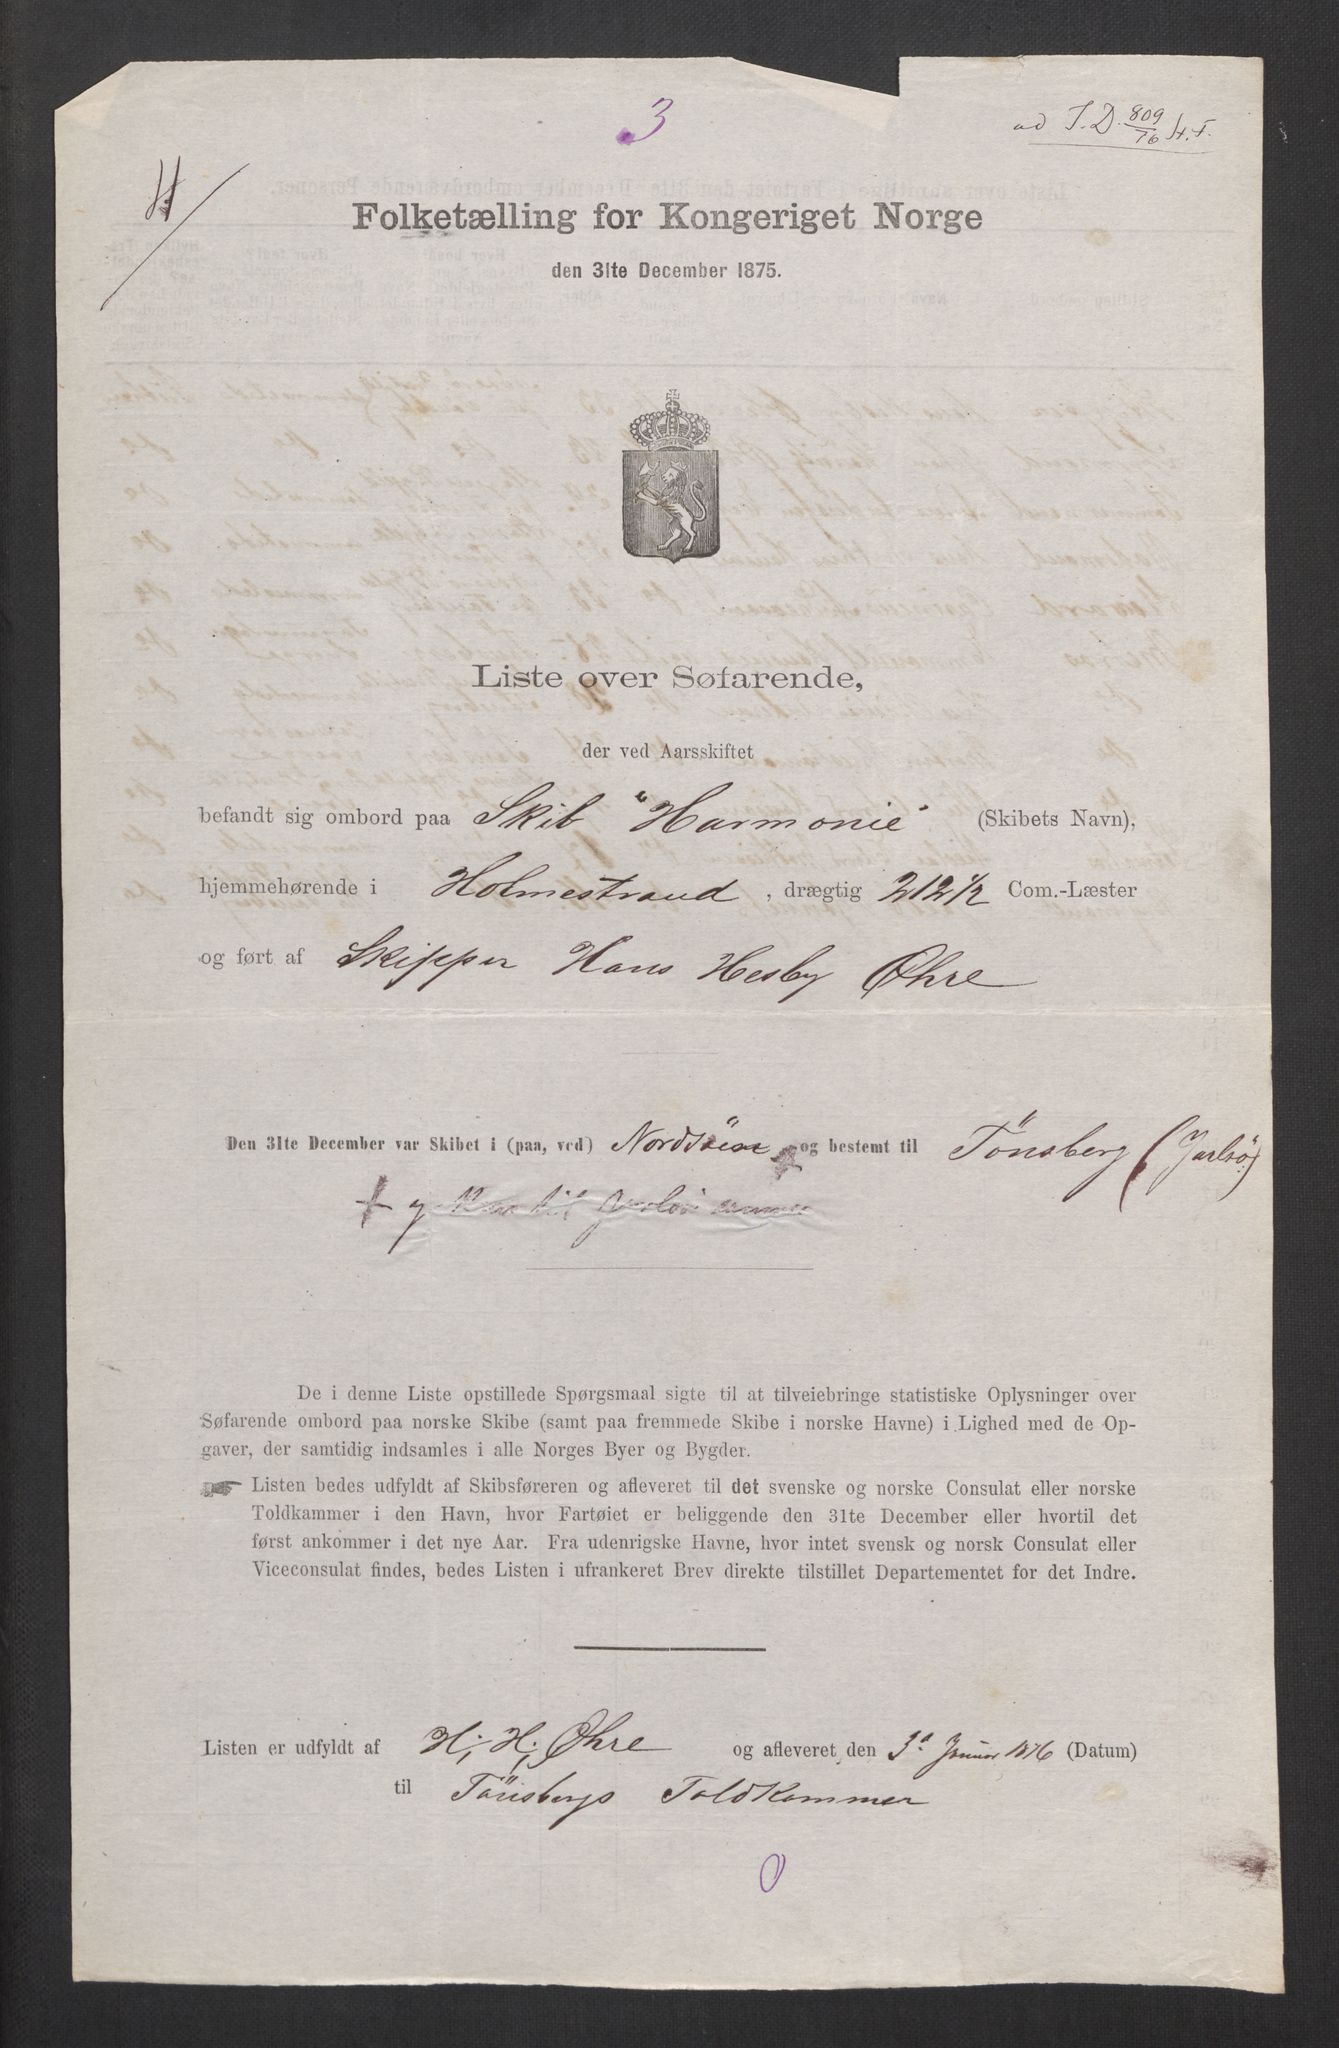 3
ad I.D. 809/76 H.F.
H
Folketælling for Kongeriget Norge
den 31te December 1875.
Liste over Søfarende,
der ved Aarsskiftet
befandt sig ombord paa Skib "Harmonie" (Skibets Navn),
hjemmehørende i Holmestrand, drægtig 212 1/2 Com.-Læster
og ført af Skipper Hans Hesby Øhre
Den 31te December var Skibet i (paa, ved) Nordsöen og bestemt til Tönsberg (Jarlsö)
De i denne Liste opstillede Spørgsmaal sigte til at tilveiebringe statistiske Oplysninger over
Søfarende ombord paa norske Skibe (samt paa fremmede Skibe i norske Havne) i Lighed med de Op-
gaver, der samtidig indsamles i alle Norges Byer og Bygder.
Listen bedes udfyldt af Skibsføreren og afleveret til det svenske og norske Consulat eller norske
Toldkammer i den Havn, hvor Fartøiet er beliggende den 31te December eller hvortil det
først ankommer i det nye Aar. Fra udenrigske Havne, hvor intet svensk og norsk Consulat eller
Viceconsulat findes, bedes Listen i ufrankeret Brev direkte tilstillet Departementet for det Indre.
Listen er udfyldt af H. H. Øhre og afleveret den 3d Januar 1876 (Datum)
til Tönsbergs Toldkammer
0